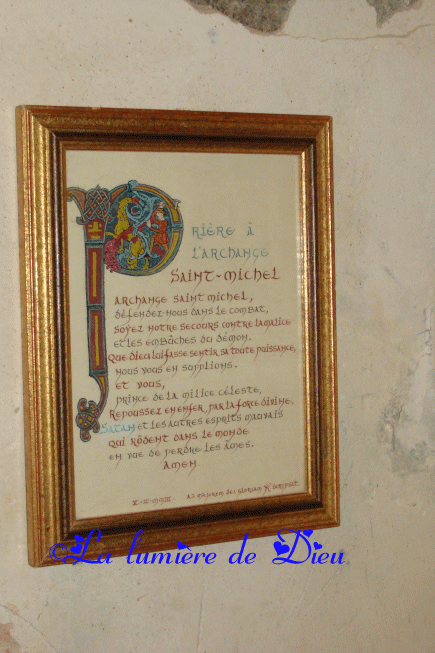 PRIÈRE À
L'ARCHANGE
SAINT-MICHEL
ARCHANGE SAINT MICHEL,
DÉFENDEZ-NOUS DANS LE COMBAT,
SOYEZ NOTRE SECOURS CONTRE LA MALICE
ET LES EMBÛCHES DU DÉMON.
QUE DIEU LUI FASSE SENTIR SA TOUTE PUISSANCE,
NOUS VOUS EN SUPPLIONS.
ET VOUS,
PRINCE DE LA MILICE CÉLESTE,
REPOUSSEZ EN ENFER, PAR LA FORCE DIVINE,
SATAN ET LES AUTRES ESPRITS MAUVAIS
QUI RÔDENT DANS LE MONDE
EN VUE DE PERDRE LES ÂMES.
AMEN
AD MAIOREM DEI GLORIAM SCRIPSIT
©La lumière de Dieu